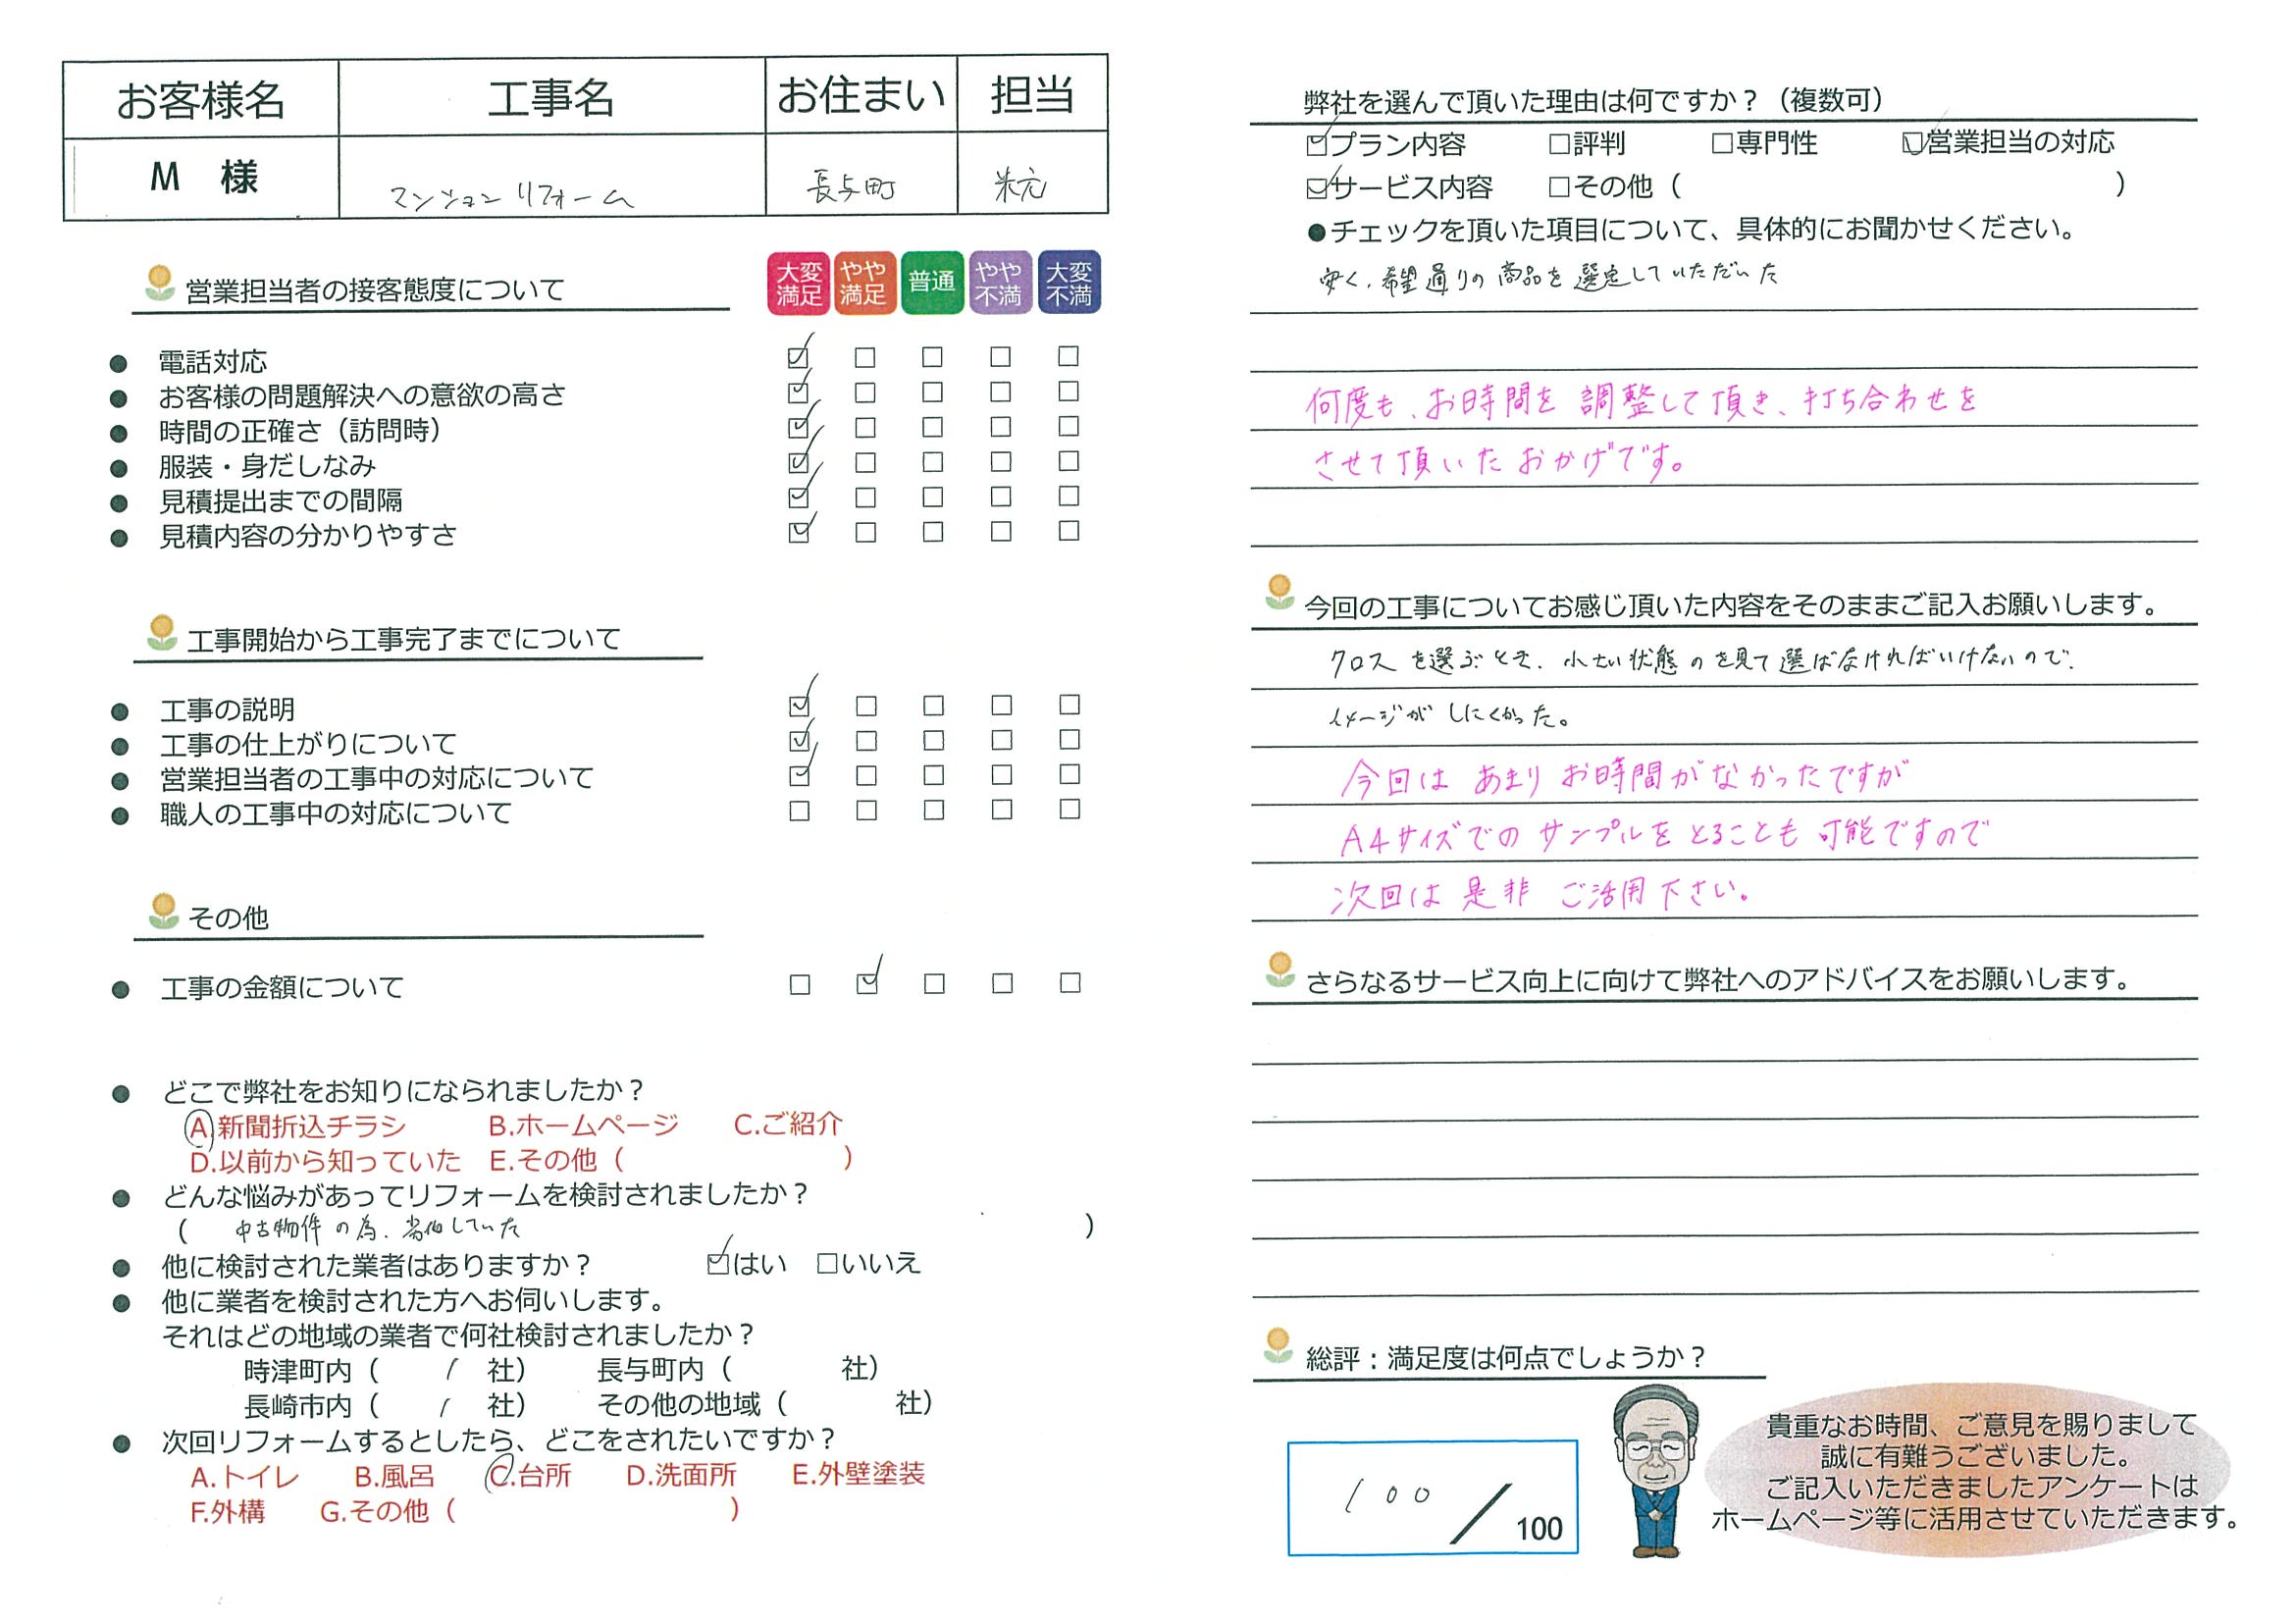 お客様名 工事名 お住まい 担当
M 様 マンションリフォーム 長与町 米元
営業担当者の接客態度について
大変満足 やや満足 普通 やや不満 大変不満
● 電話対応 ☑ □ □ □ □
● お客様の問題解決への意欲の高さ ☑ □ □ □ □
● 時間の正確さ（訪問時） ☑ □ □ □ □
● 服装・身だしなみ ☑ □ □ □ □
● 見積提出までの間隔 ☑ □ □ □ □
● 見積内容の分かりやすさ ☑ □ □ □ □
工事開始から工事完了までについて
● 工事の説明 ☑ □ □ □ □
● 工事の仕上がりについて ☑ □ □ □ □
● 営業担当者の工事中の対応について ☑ □ □ □ □
● 職人の工事中の対応について □ □ □ □ □
その他
● 工事の金額について □ ☑ □ □ □
● どこで弊社をお知りになられましたか？
A.新聞折込チラシ B.ホームページ C.ご紹介
D.以前から知っていた E.その他（ ）
● どんな悩みがあってリフォームを検討されましたか？
（ 中古物件の為、劣化していた ）
● 他に検討された業者はありますか？ ☑はい □いいえ
● 他に業者を検討された方へお伺いします。
それはどの地域の業者で何社検討されましたか？
時津町内（ 1 社） 長与町内（ 社）
長崎市内（ 1 社） その他の地域（ 社）
● 次回リフォームするとしたら、どこをされたいですか？
A.トイレ B.風呂 C.台所 D.洗面所 E.外壁塗装
F.外構 G.その他（ ）
弊社を選んで頂いた理由は何ですか？（複数可）
☑プラン内容 □評判 □専門性 ☑営業担当の対応
☑サービス内容 □その他（ ）
●チェックを頂いた項目について、具体的にお聞かせください。
安く、希望通りの商品を選定していただいた
何度も、お時間を調整して頂き、打ち合わせを
させて頂いたおかげです。
今回の工事についてお感じ頂いた内容をそのままご記入お願いします。
クロスを選ぶとき、小さい状態のを見て選ばなければいけないので、
イメージがしにくかった。
今回はあまりお時間がなかったですが
A4サイズでのサンプルをとることも可能ですので
次回は是非ご活用下さい。
さらなるサービス向上に向けて弊社へのアドバイスをお願いします。
総評：満足度は何点でしょうか？
100／100
貴重なお時間、ご意見を賜りまして
誠に有難うございました。
ご記入いただきましたアンケートは
ホームページ等に活用させていただきます。